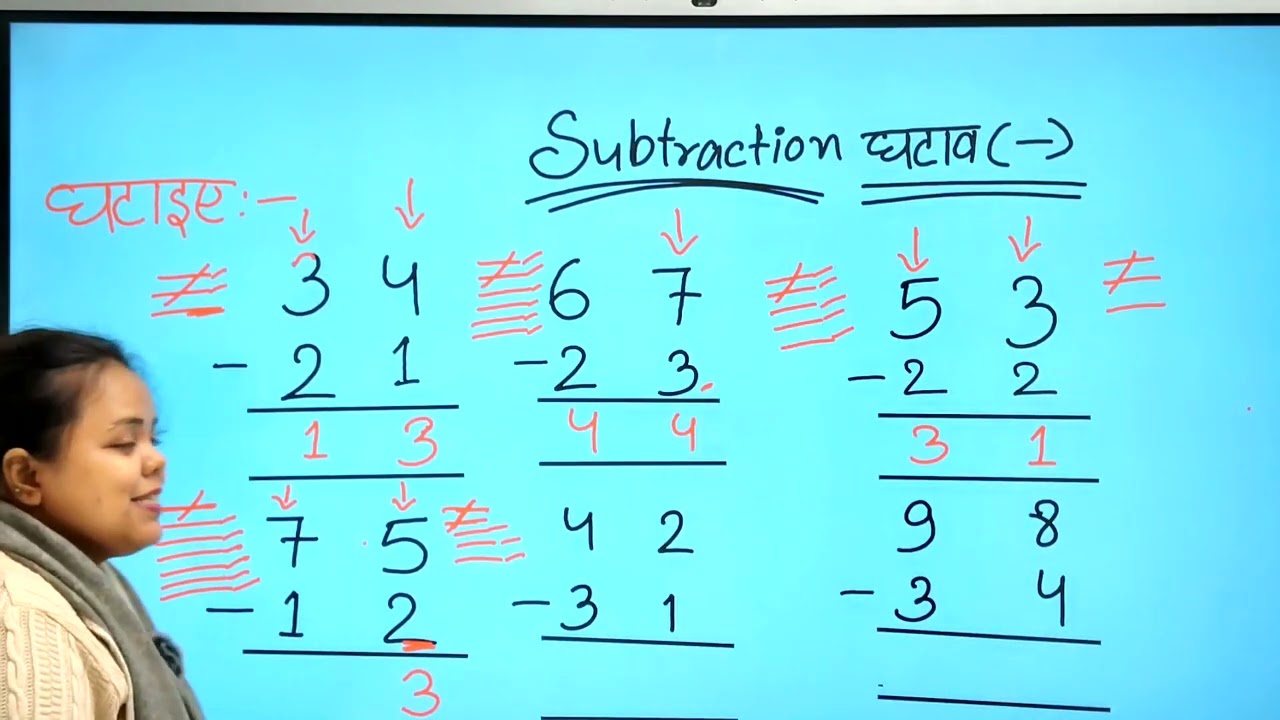 Subtraction घटाव (-)
घटाइए:-
3 4 6 7 5 3
- 2 1 - 2 3. - 2 2
1 3 4 4 3 1
7 5 4 2 9 8
- 1 2 - 3 1 - 3 4
3